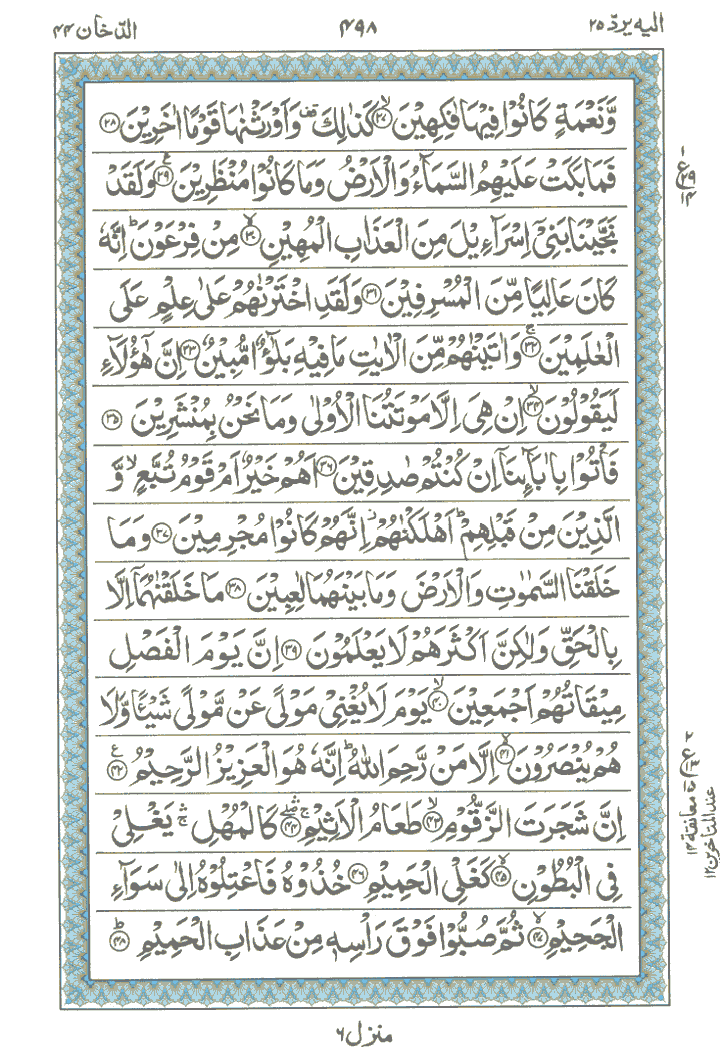 الیه یردّ ۲۵ ۴۹۸ الدّخان ۴۴
وَّنَعْمَةٍ كَانُوْا فِيْهَا فٰكِهِيْنَ ۙ﴿۲۷﴾ كَذٰلِكَ ۫ وَاَوْرَثْنٰهَا قَوْمًا اٰخَرِيْنَ ﴿۲۸﴾
فَمَا بَكَتْ عَلَيْهِمُ السَّمَآءُ وَالْاَرْضُ وَمَا كَانُوْا مُنْظَرِيْنَ ﴿۲۹﴾ۧ وَلَقَدْ
نَجَّيْنَا بَنِيْٓ اِسْرَآءِيْلَ مِنَ الْعَذَابِ الْمُهِيْنِ ۙ﴿۳۰﴾ مِنْ فِرْعَوْنَ ؕ اِنَّهٗ
كَانَ عَالِيًا مِّنَ الْمُسْرِفِيْنَ ﴿۳۱﴾ وَلَقَدِ اخْتَرْنٰهُمْ عَلٰى عِلْمٍ عَلَى
الْعٰلَمِيْنَ ۚ﴿۳۲﴾ وَاٰتَيْنٰهُمْ مِّنَ الْاٰيٰتِ مَا فِيْهِ بَلٰٓؤٌا مُّبِيْنٌ ﴿۳۳﴾ اِنَّ هٰٓؤُلَآءِ
لَيَقُوْلُوْنَ ۙ﴿۳۴﴾ اِنْ هِيَ اِلَّا مَوْتَتُنَا الْاُوْلٰى وَمَا نَحْنُ بِمُنْشَرِيْنَ ﴿۳۵﴾
فَاْتُوْا بِاٰبَآىِٕنَآ اِنْ كُنْتُمْ صٰدِقِيْنَ ﴿۳۶﴾ اَهُمْ خَيْرٌ اَمْ قَوْمُ تُبَّعٍ ۙ وَّ
الَّذِيْنَ مِنْ قَبْلِهِمْ ؕ اَهْلَكْنٰهُمْ ۫ اِنَّهُمْ كَانُوْا مُجْرِمِيْنَ ﴿۳۷﴾ وَمَا
خَلَقْنَا السَّمٰوٰتِ وَالْاَرْضَ وَمَا بَيْنَهُمَا لٰعِبِيْنَ ﴿۳۸﴾ مَا خَلَقْنٰهُمَآ اِلَّا
بِالْحَقِّ وَلٰكِنَّ اَكْثَرَهُمْ لَا يَعْلَمُوْنَ ﴿۳۹﴾ اِنَّ يَوْمَ الْفَصْلِ
مِيْقَاتُهُمْ اَجْمَعِيْنَ ۙ﴿۴۰﴾ يَوْمَ لَا يُغْنِيْ مَوْلًى عَنْ مَّوْلًى شَيْـًٔا وَّلَا
هُمْ يُنْصَرُوْنَ ۙ﴿۴۱﴾ اِلَّا مَنْ رَّحِمَ اللّٰهُ ؕ اِنَّهٗ هُوَ الْعَزِيْزُ الرَّحِيْمُ ﴿۴۲﴾ۧ
اِنَّ شَجَرَتَ الزَّقُّوْمِ ۙ﴿۴۳﴾ طَعَامُ الْاَثِيْمِ ۛۖ﴿۴۴﴾ كَالْمُهْلِ ۛۚ يَغْلِيْ
فِي الْبُطُوْنِ ۙ﴿۴۵﴾ كَغَلْيِ الْحَمِيْمِ ﴿۴۶﴾ خُذُوْهُ فَاعْتِلُوْهُ اِلٰى سَوَآءِ
الْجَحِيْمِ ۙ﴿۴۷﴾ ثُمَّ صُبُّوْا فَوْقَ رَاْسِهٖ مِنْ عَذَابِ الْحَمِيْمِ ؕ﴿۴۸﴾
معانقة ۱۴
عند المتاخرین ۱۲
منزل ۶